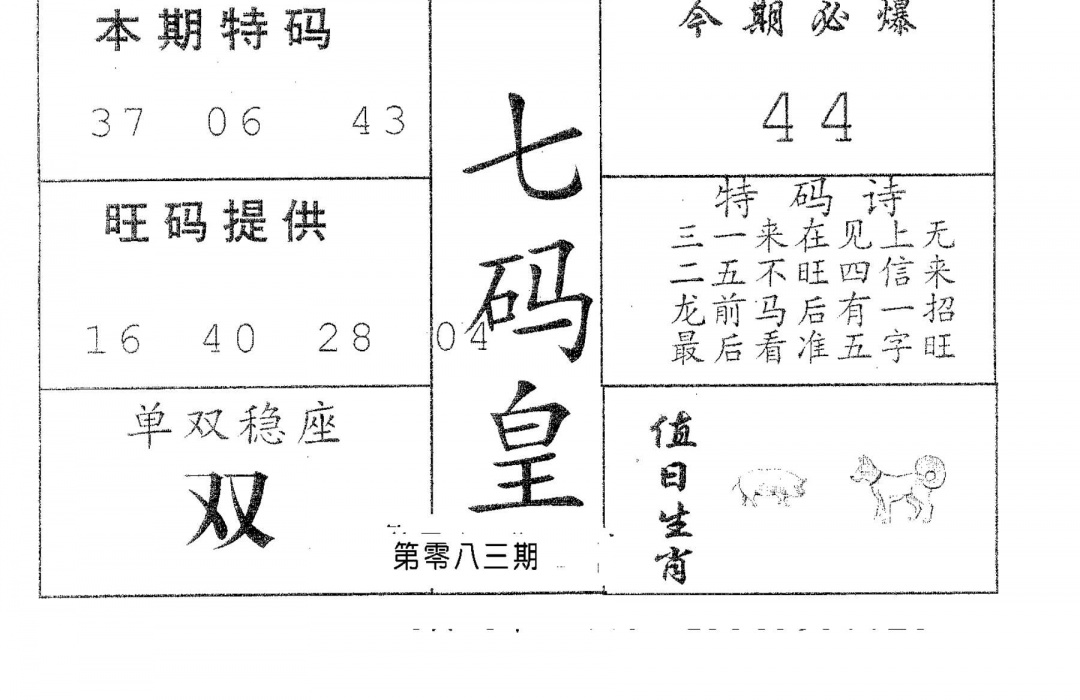 本期特码
37 06 43
旺码提供
16 40 28 04
单双稳座
双
七码皇
第零八三期
今期必爆
44
特码诗
三一来在见上无
二五不旺四信来
龙前马后有一招
最后看准五字旺
值日生肖